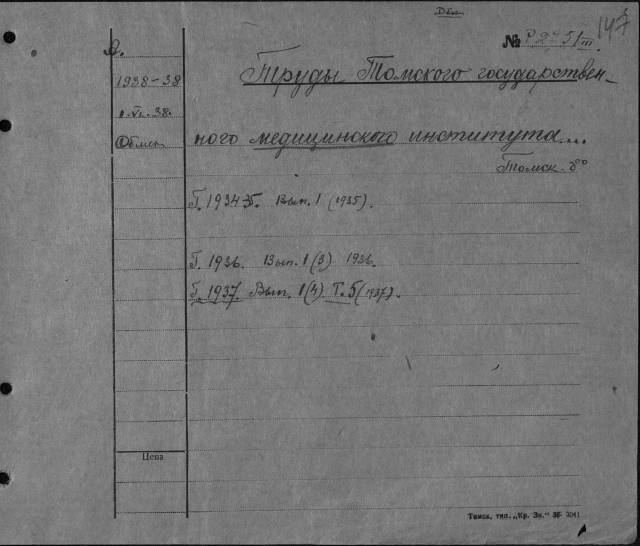 147
№ Р2751 III.
А.
1938-38
Труды Томского государствен-
Обмен
ного медицинского института...
Томск. 8°
Г. 1934-35. Вып. 1 (1935).
Г. 1936. Вып. 1(3) 1936.
Г. 1937. Вып. 1(4) Т. 5 (1937).
Цена
Томск, тип. „Кр. Зн." 36 3041